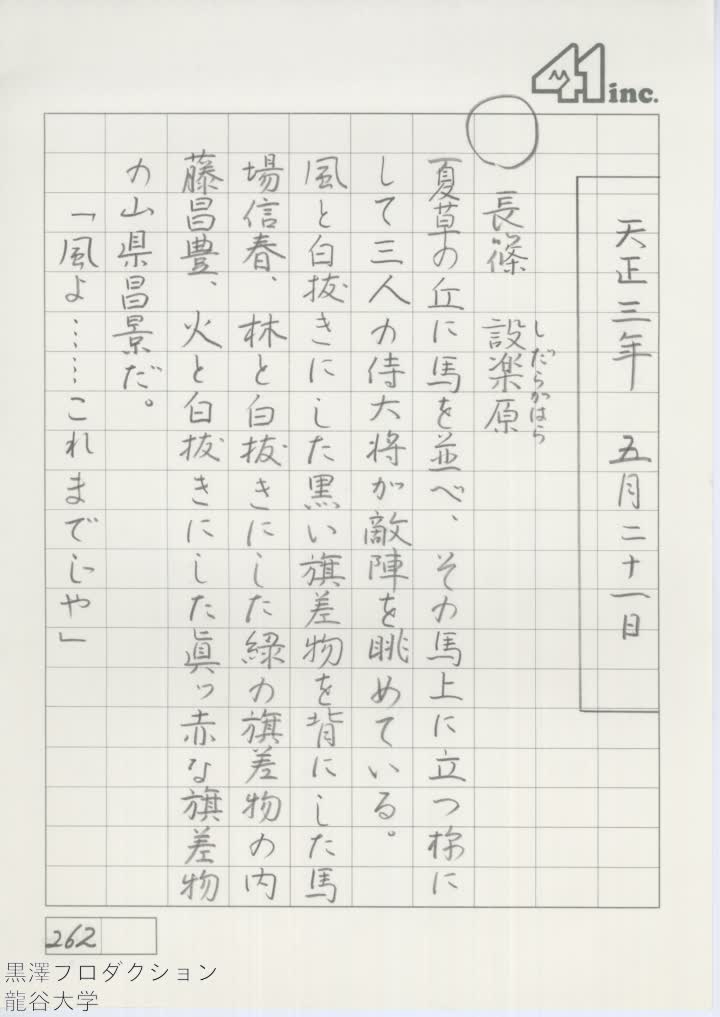 41 inc.
天正三年　五月二十一日
○
長篠　設楽原
しだらがはら
夏草の丘に馬を並べ、その馬上に立つ様に
して三人の侍大将が敵陣を眺めている。
風と白抜きにした黒い旗差物を背にした馬
場信春、林と白抜きにした緑の旗差物の内
藤昌豊、火と白抜きにした眞ッ赤な旗差物
の山県昌景だ。
「風よ……これまでじや」
262
黒澤フロダクション
龍谷大学